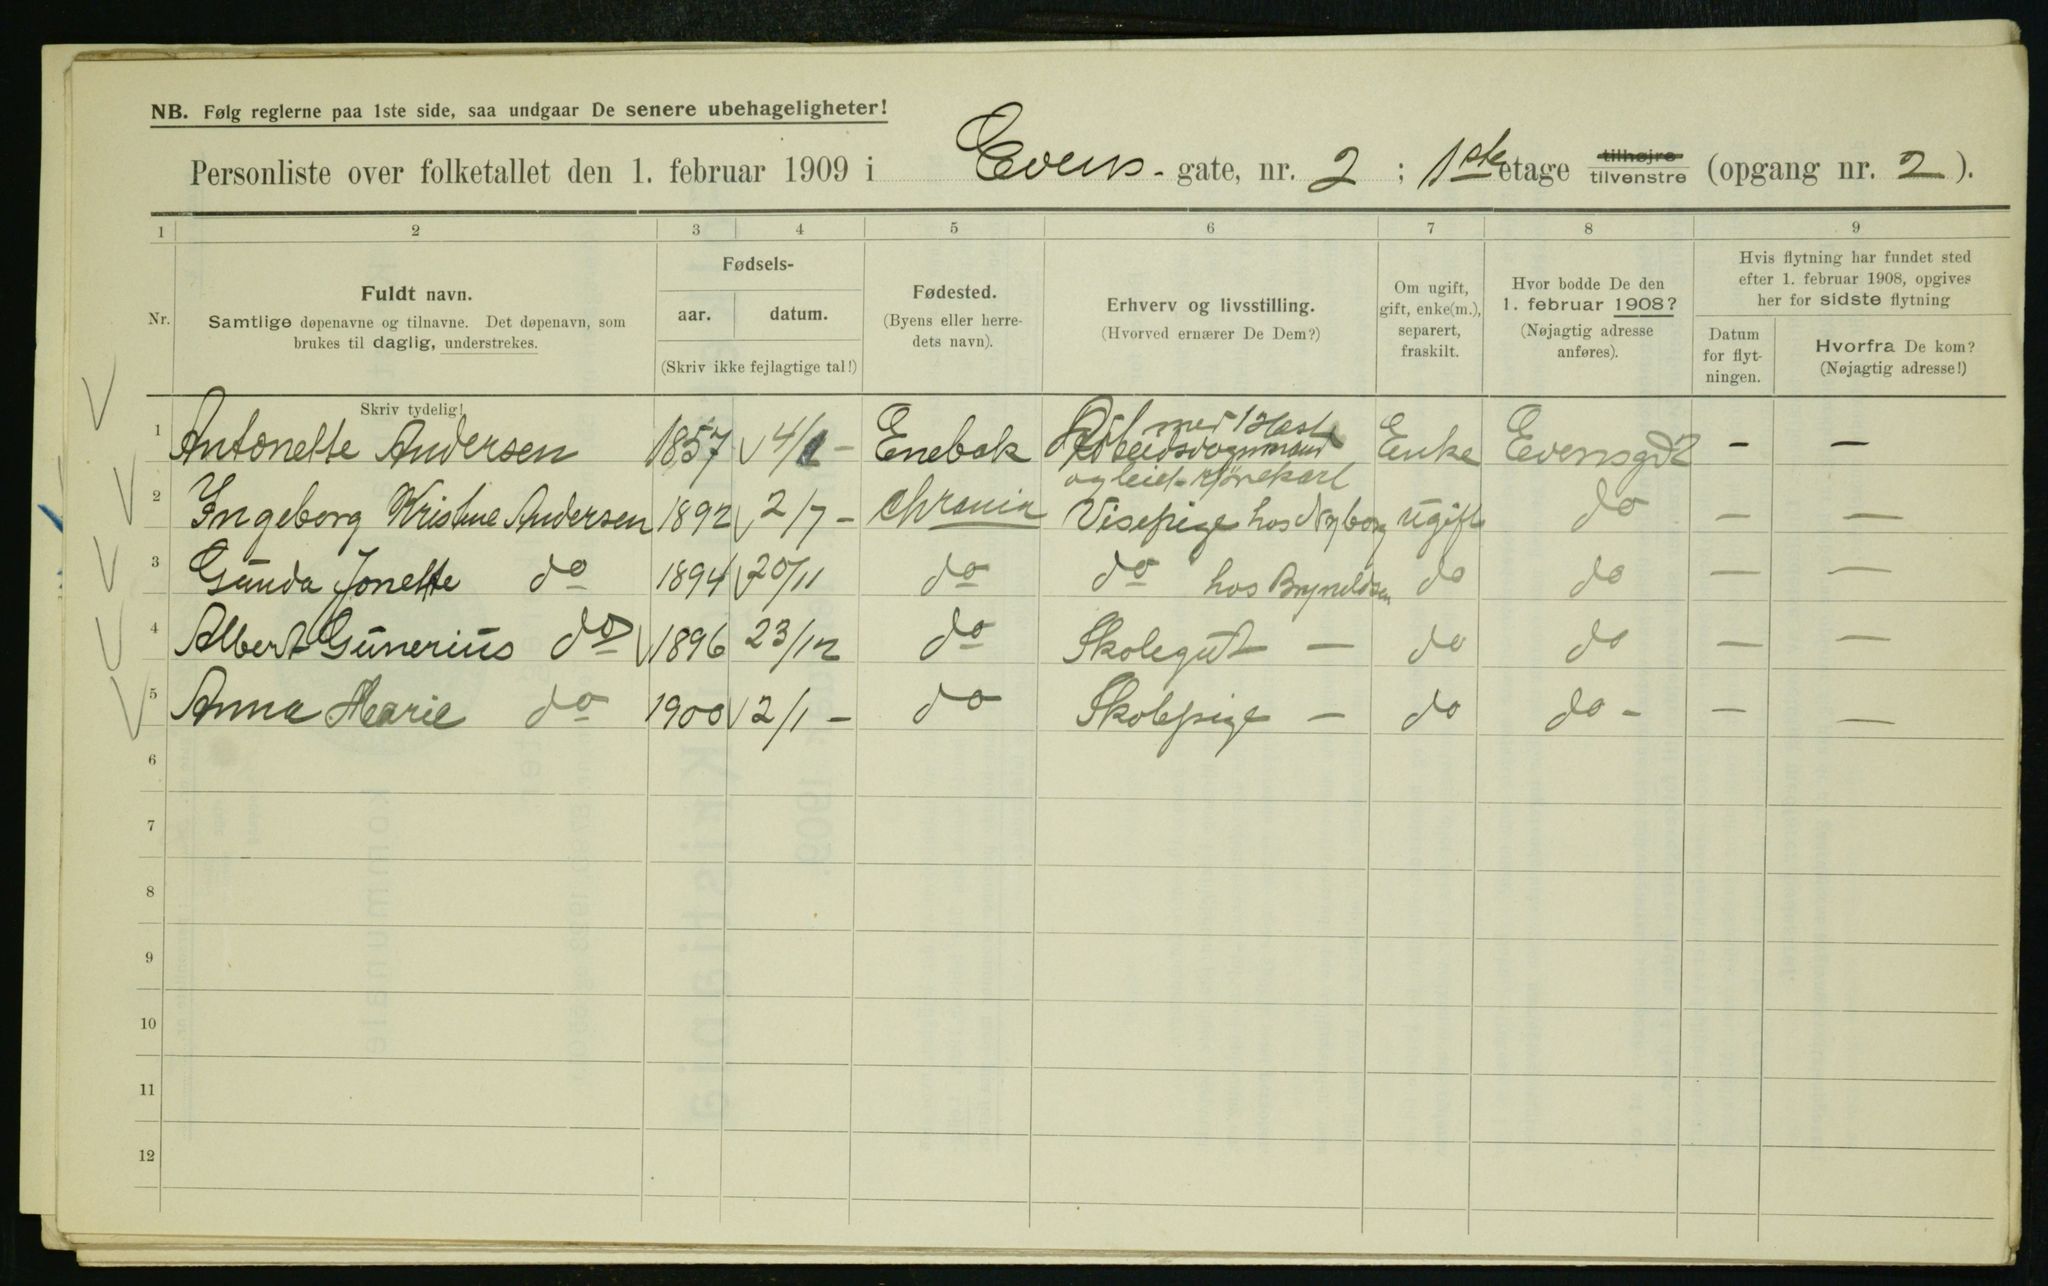 NB. Følg reglerne paa 1ste side, saa undgaar De senere ubehageligheter!
Personliste over folketallet den 1. februar 1909 i Evens- gate, nr. 2 ; 1ste etage tilhøjre tilvenstre (opgang nr. 2 ).
1 2 3 4 5 6 7 8 9
Nr.
Fuldt navn.
Samtlige døpenavne og tilnavne. Det døpenavn, som
brukes til daglig, understrekes.
Skriv tydelig!
Fødsels-
aar. datum.
(Skriv ikke fejlagtige tal!)
Fødested.
(Byens eller herre-
dets navn).
Erhverv og livsstilling.
(Hvorved ernærer De Dem?)
Om ugift,
gift, enke(m.),
separert,
fraskilt.
Hvor bodde De den
1. februar 1908?
(Nøjagtig adresse
anføres).
Hvis flytning har fundet sted
efter 1. februar 1908, opgives
her for sidste flytning
Datum
for flyt-
ningen.
Hvorfra De kom?
(Nøjagtig adresse!)
1 Antonette Andersen 1857 4/1 - Enebak med 1 Hest Arbeidsvognmand og leiet Kjørekarl Enke Evensgd 2 — —
2 Yngeborg Kristine Andersen 1892 2/7 - Chrania Visepige hos Nyborg ugift do — —
3 Gunda Jonette do 1894 20/11 do do hos Bryneldsen do do — —
4 Albert Gunerius do 1896 23/12 do Skolegut — do do — —
5 Anna Marie do 1900 2/1 - do Skolepige — do do - — —
6
7
8
9
10
11
12